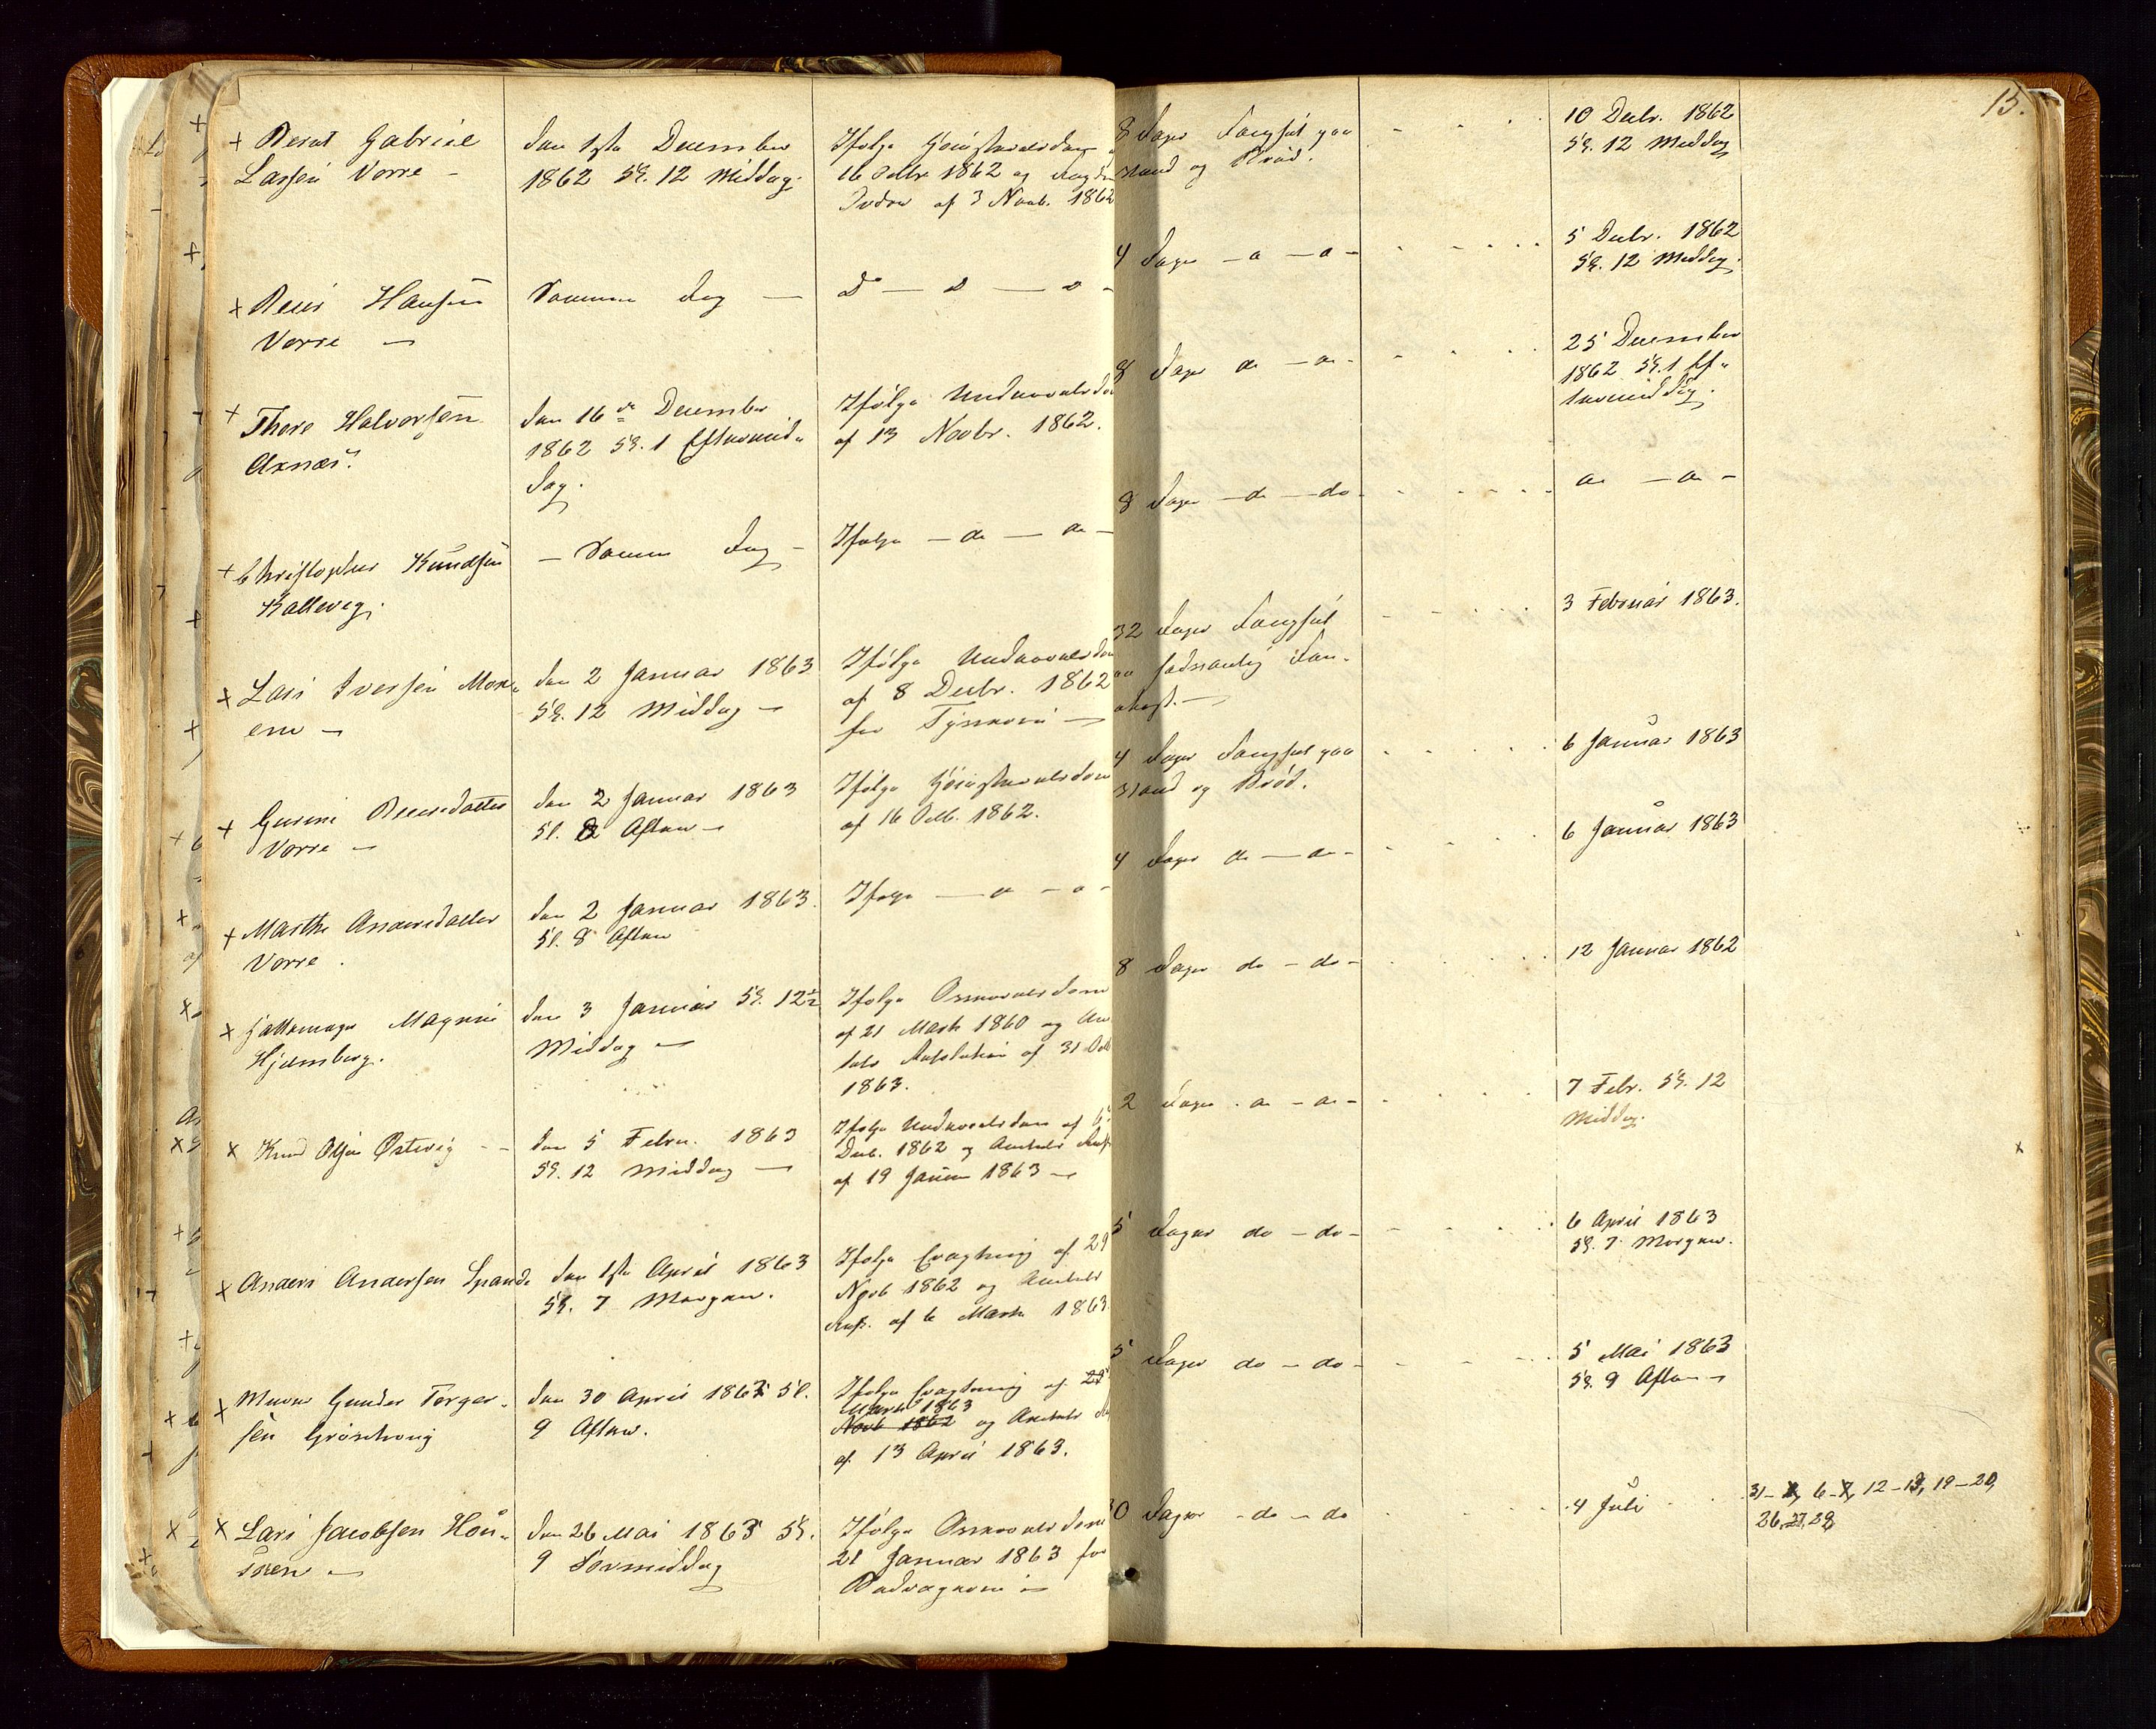 13.
+ Bernt Gabriel
Larsen Vorre -
den 1ste December
1862 Kl. 12 Middag.
Ifølge Høiesteretsdom
16 Octbr 1862 og
af 3 Novb. 1862
8 Dage Fængsel paa
Vand og Brød.
10 Decbr. 1862
Kl. 12 Middag
+ Reier Hansen
Vorre -
Samme Dag -
do - do - do -
4 Dage - do - do -
5 Decbr. 1862
Kl. 12 Middag.
+ Thore Halvorsen
Axnæs.
den 16de December
1862 Kl. 1 Eftermid-
dag.
Ifølge Underretsdom
af 13 Novbr. 1862.
8 Dage do - do -
25 December
1862 Kl. 1 Ef-
termiddag.
+ Christopher Knudsen
Kallevig.
- Samme Dag -
Ifølge - do - do -
8 Dage - do - do -
do - do -
+ Lars Iversen Mox-
em -
den 2 Januar 1863
Kl. 12 Middag -
Ifølge Underretsdom
af 8 Decbr. 1862
for Tyveri -
32 Dages Fængsel
paa sædvanlig Fan-
gekost. -
3 Februar 1863.
+ Gurine Reiersdatter
Vorre -
den 2 Januar 1863
Kl. 8 Aften -
Ifølge Høiesteretsdom
af 16 Octb. 1862.
4 Dages Fængsel paa
Vand og Brød.
6 Januar 1863
+ Marthe Andersdatter
Vorre.
den 2 Januar 1863.
Kl. 8 Aften
Ifølge - do - do -
4 Dage do - do -
6 Januar 1863
+ Magnus
Hjemberg.
den 3 Januar Kl. 12½
Middag -
Ifølge Overretsdom
af 21 Marts 1860 og Am-
tets Resolution af 31 Octb
1863.
8 Dage do - do -
12 Januar 1862
+ Knud Olsen Østevig - -
den 5 Febru. 1863
Kl. 12 Middag -
Ifølge Underretsdom af 6
Decb. 1862 og Amtets Res.
af 19 Januar 1863 -
2 Dage. do - do -
7 Febr. Kl. 12
Middag.
+ Anders Andersen Spande
den 1ste April 1863
Kl. 7 Morgen.
Ifølge af 29
Novb 1862 og Amtets
Res. af 6 Marts 1863.
5 Dager do - do -
6 April 1863
Kl. 7 Morgen.
+ Gunder Torger-
sen
den 30 April 1863 Kl.
9 Aften.
Ifølge af 23
Marts 1863
Novb 1862 og Amtets
af 13 April 1863.
5 Dager do - do -
5 Mai 1863
Kl. 9 Aften -
+ Lars Jacobsen Hou-
den 26 Mai 1863 Kl.
9 Formiddag
Ifølge Overretsdom
21 Januar 1863 for
Bedrageri -
30 Dager - do - do
4 Juli